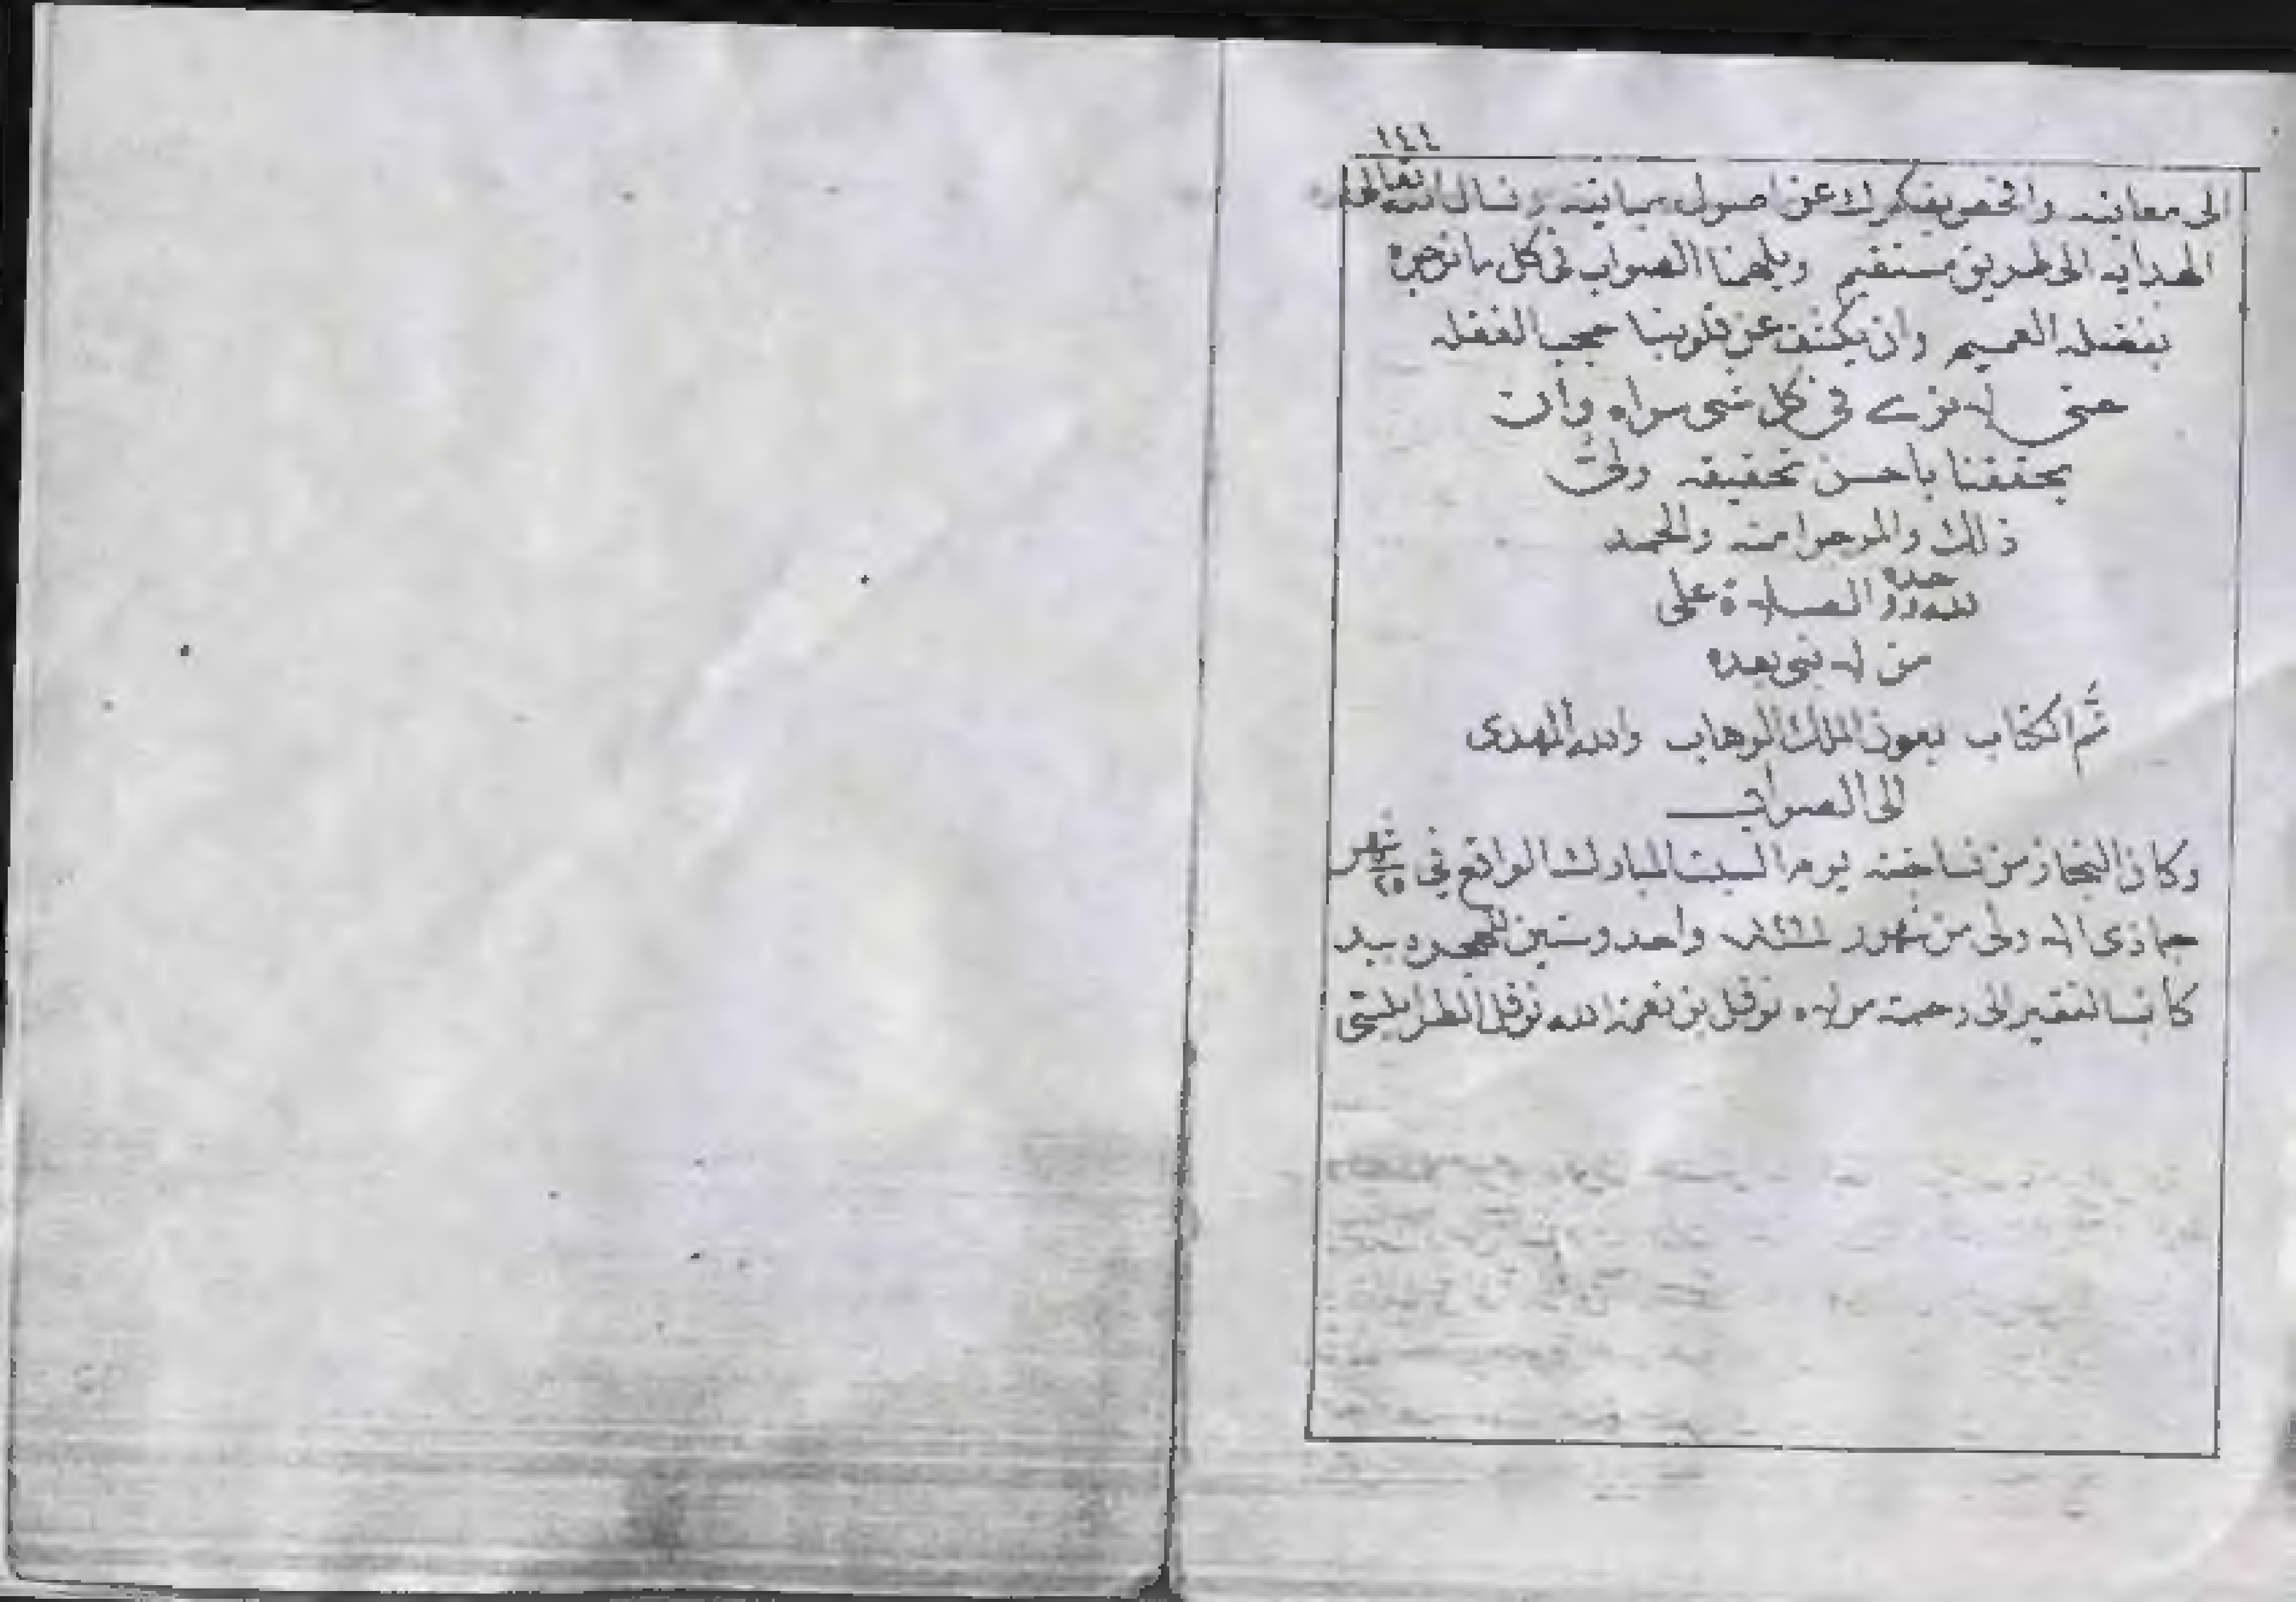 ١٤٤
الى معاينه وافحص بفكرك عن اصول مباينه ونسال الله تعالى
الهدايه الى طريق مستقيم ويلهمنا الصواب فى كل ما نرجوه
بفضله العميم وان يكشف عن قلوبنا حجب الغفله
حتى لا نرى في كل شى سواه وان
يحققنا باحسن تحقيقه ولى
ذلك والمرجوا منه والحمد
لله وحده والصلاة على
من لا نبى بعده
تم الكتاب بعون الملك الوهاب والله المهدى
الى الصواب
وكان النجاز من نساخته يوم السبت المبارك الواقع في ٢٥ شهر
جمادى الاولى من شهور ١٢٦١ واحد وستين للهجره بيد
كاتبه الفقير الى رحمت مولاه نوفل بن نعمة الله نوفل الطرابلسي